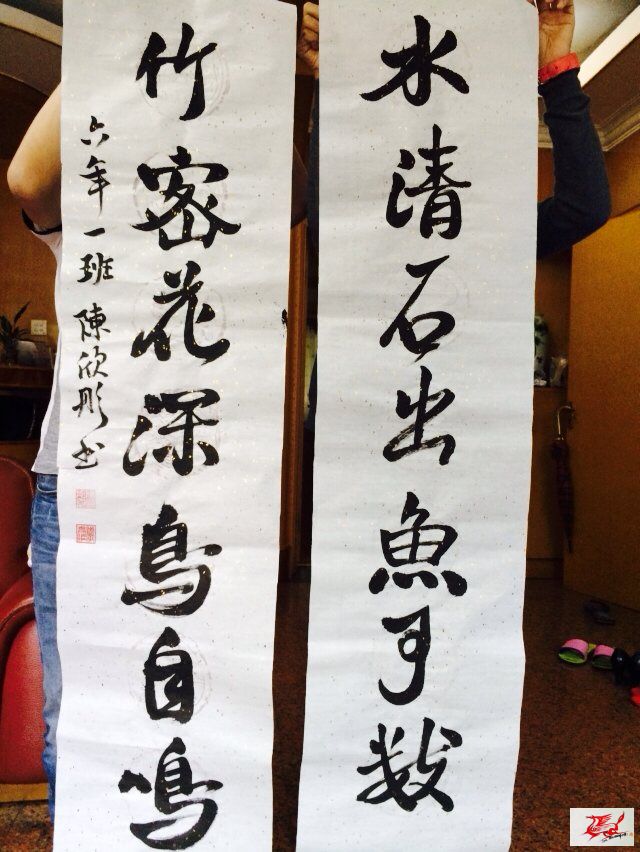 水清石出魚可數
竹密花深鳥自鳴
六年一班 陳欣彤书